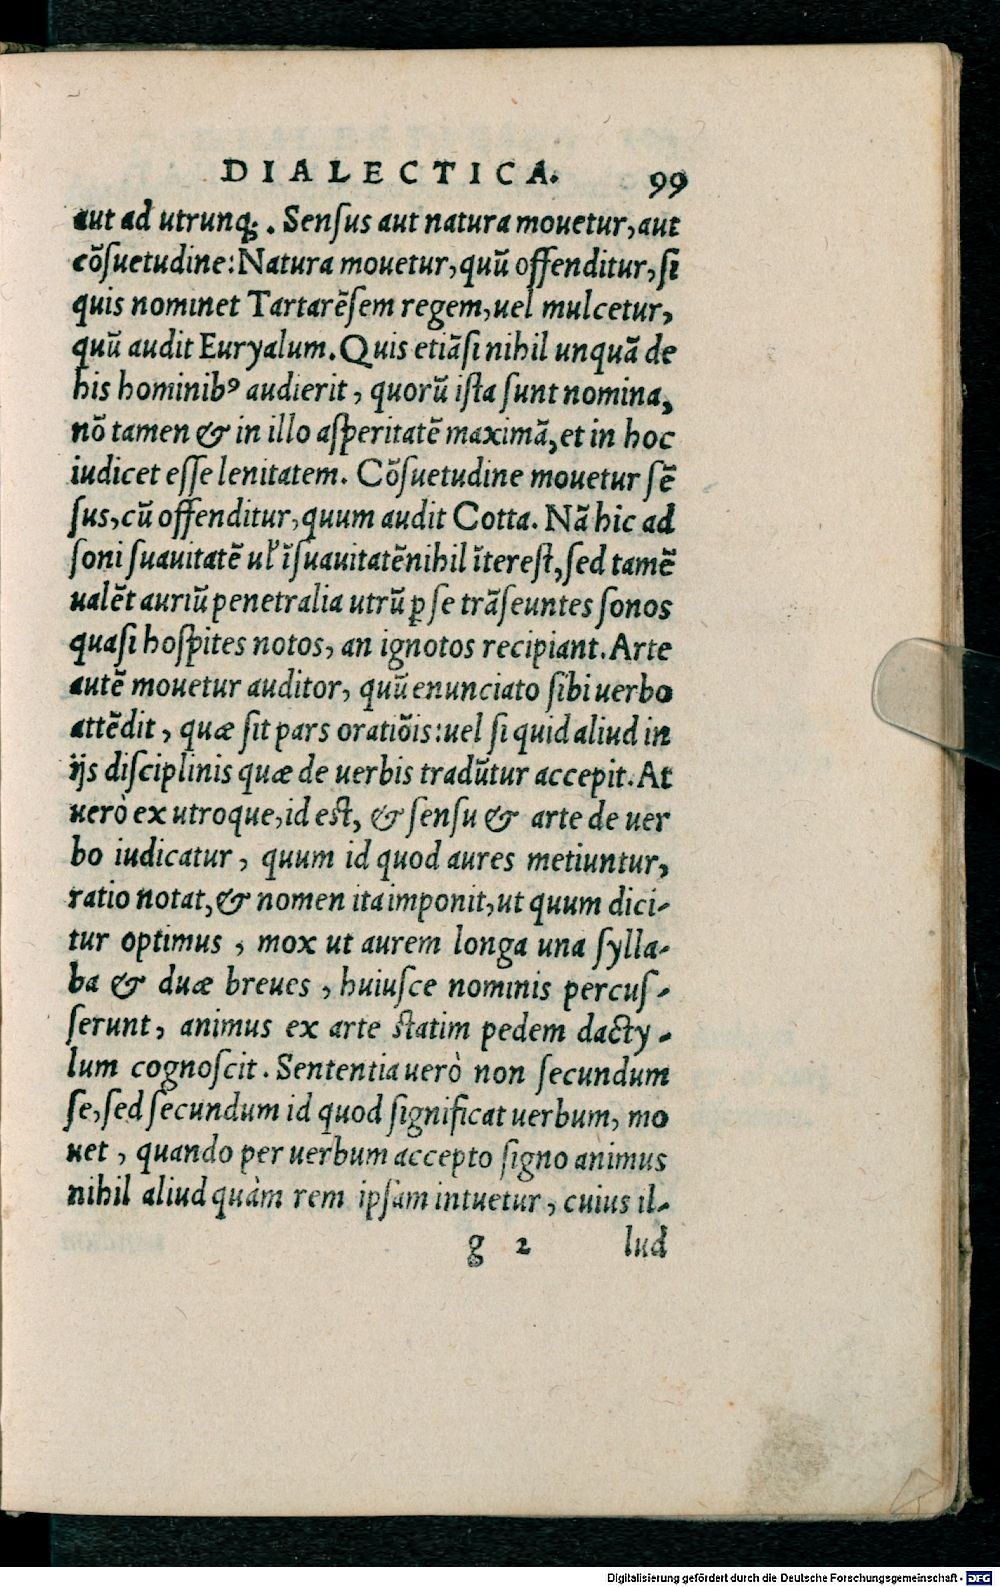 DIALECTICA. 99
aut ad utrunq;. Senſus aut natura mouetur, aut
cõſuetudine: Natura mouetur, quũ offenditur, ſi
quis nominet Tartarẽſem regem, uel mulcetur,
quũ audit Euryalum. Quis etiãſi nihil unquã de
his hominibꝰ audierit, quorũ iſta ſunt nomina,
nõ tamen & in illo aſperitatẽ maximã, et in hoc
iudicet eſſe lenitatem. Cõſuetudine mouetur ſẽ
ſus, cũ offenditur, quum audit Cotta. Nã hic ad
ſoni ſuauitatẽ ul' ĩſuauitatẽ nihil ĩtereſt, ſed tamẽ
ualẽt auriũ penetralia utrũ ꝑ ſe trãſeuntes ſonos
quaſi hoſpites notos, an ignotos recipiant. Arte
autẽ mouetur auditor, quũ enunciato ſibi uerbo
attẽdit, quæ ſit pars oratiõis: uel ſi quid aliud in
ijs diſciplinis quæ de uerbis tradũtur accepit. At
uerò ex utroque, id eſt, & ſenſu & arte de uer
bo iudicatur, quum id quod aures metiuntur,
ratio notat, & nomen ita imponit, ut quum dici-
tur optimus, mox ut aurem longa una ſylla-
ba & duæ breues, huiuſce nominis percuſ-
ſerunt, animus ex arte ſtatim pedem dacty-
lum cognoſcit. Sententia uerò non ſecundum
ſe, ſed ſecundum id quod ſignificat uerbum, mo
uet, quando per uerbum accepto ſigno animus
nihil aliud quàm rem ipſam intuetur, cuius il-
g 2 lud
Digitalisierung gefördert durch die Deutsche Forschungsgemeinschaft - DFG